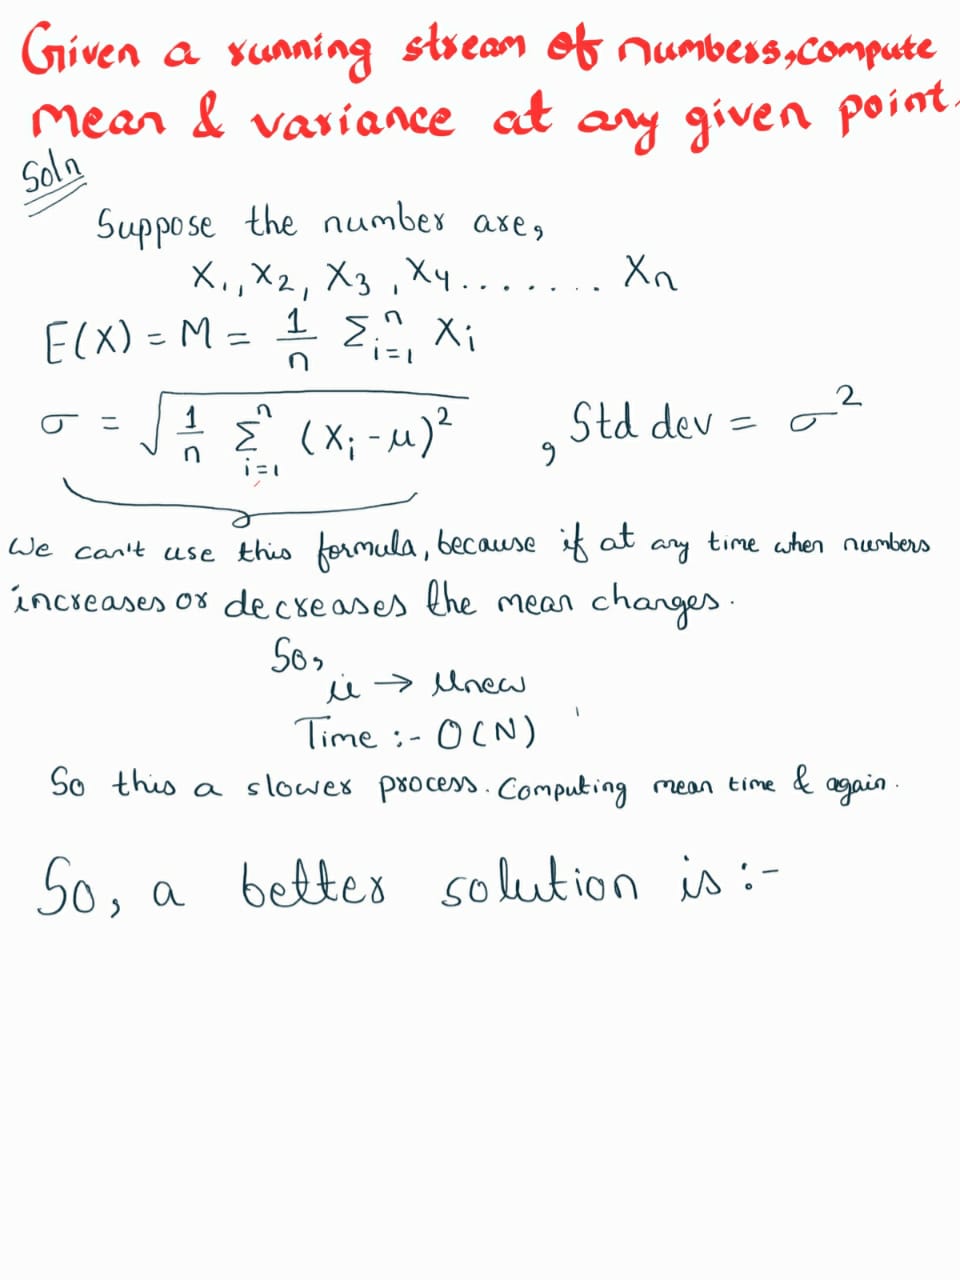 Given a running stream of numbers, compute
mean & variance at any given point.
Soln
Suppose the number are,
X₁, X₂, X₃, X₄....... Xn
E(X) = M = 1/n Σᵢ₌₁ⁿ Xᵢ
σ = √(1/n Σᵢ₌₁ⁿ (Xᵢ - μ)²) , Std dev = σ²
We can't use this formula, because if at any time when numbers
increases or decreases the mean changes.
So,
μ → μnew
Time :- O(N)
So this a slower process. Computing mean time & again.
So, a better solution is :-